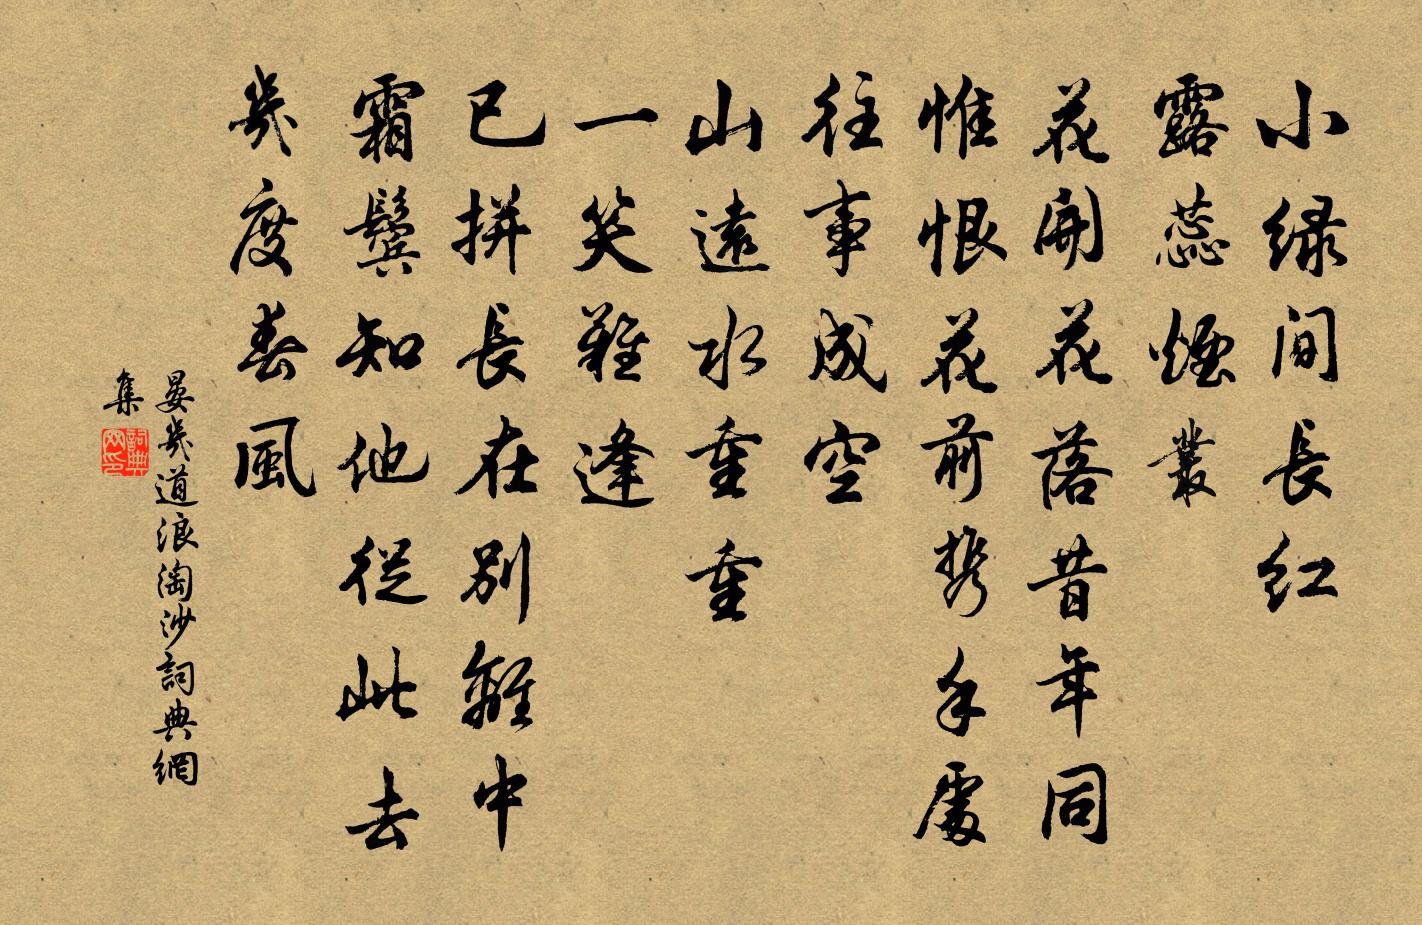 小緑间長紅
露蕊煙叢
花開花落昔年同
惟恨花前携手處
往事成空
山遠水重重
一笑難逢
已拼長在别離中
霜鬓知他從此去
幾度春風
晏幾道浪淘沙詞典網
集
詞典
网印